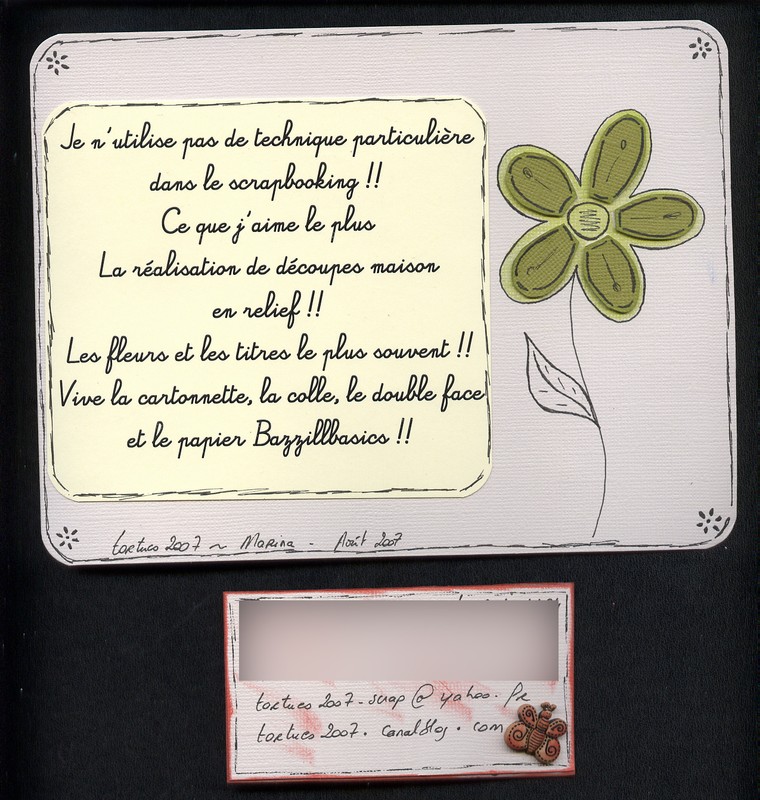 Je n'utilise pas de technique particulière
dans le scrapbooking !!
Ce que j'aime le plus
La réalisation de découpes maison
en relief !!
Les fleurs et les titres le plus souvent !!
Vive la cartonnette, la colle, le double face
et le papier Bazzillbasics !!
tortues 2007 ~ Marina - Août 2007
tortues 2007-scrap @ yahoo. Fr
tortues 2007. canalblog. com